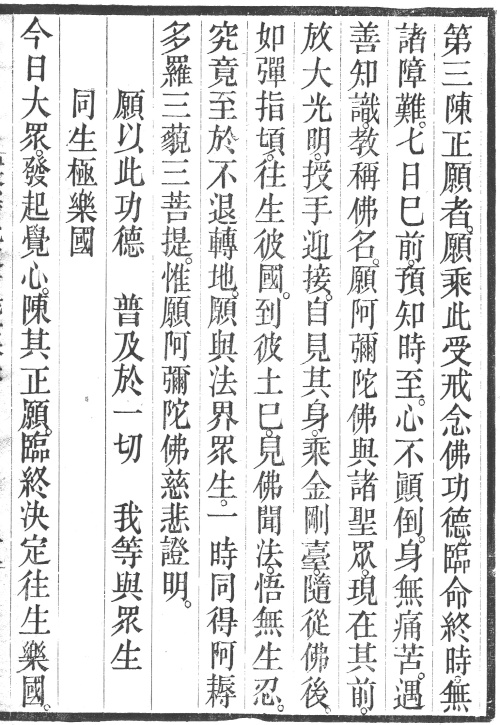 第三陳正願者。願乘此受戒念佛功德。臨命終時。無
諸障難。七日巳前。預知時至。心不顚倒。身無痛苦。遇
善知識。敎稱佛名。願阿彌陀佛與諸聖眾。現在其前。
放大光明。授手迎接。自見其身。乘金剛臺。隨從佛後。
如彈指頃。往生彼國。到彼土巳。見佛聞法。悟無生忍。
究竟至於不退轉地。願與法界眾生。一時同得阿耨
多羅三藐三菩提。惟願阿彌陀佛慈悲證明。
願以此功德　普及於一切　我等與眾生
同生極樂國
今日大眾。發起覺心。陳其正願。臨終決定往生樂國。